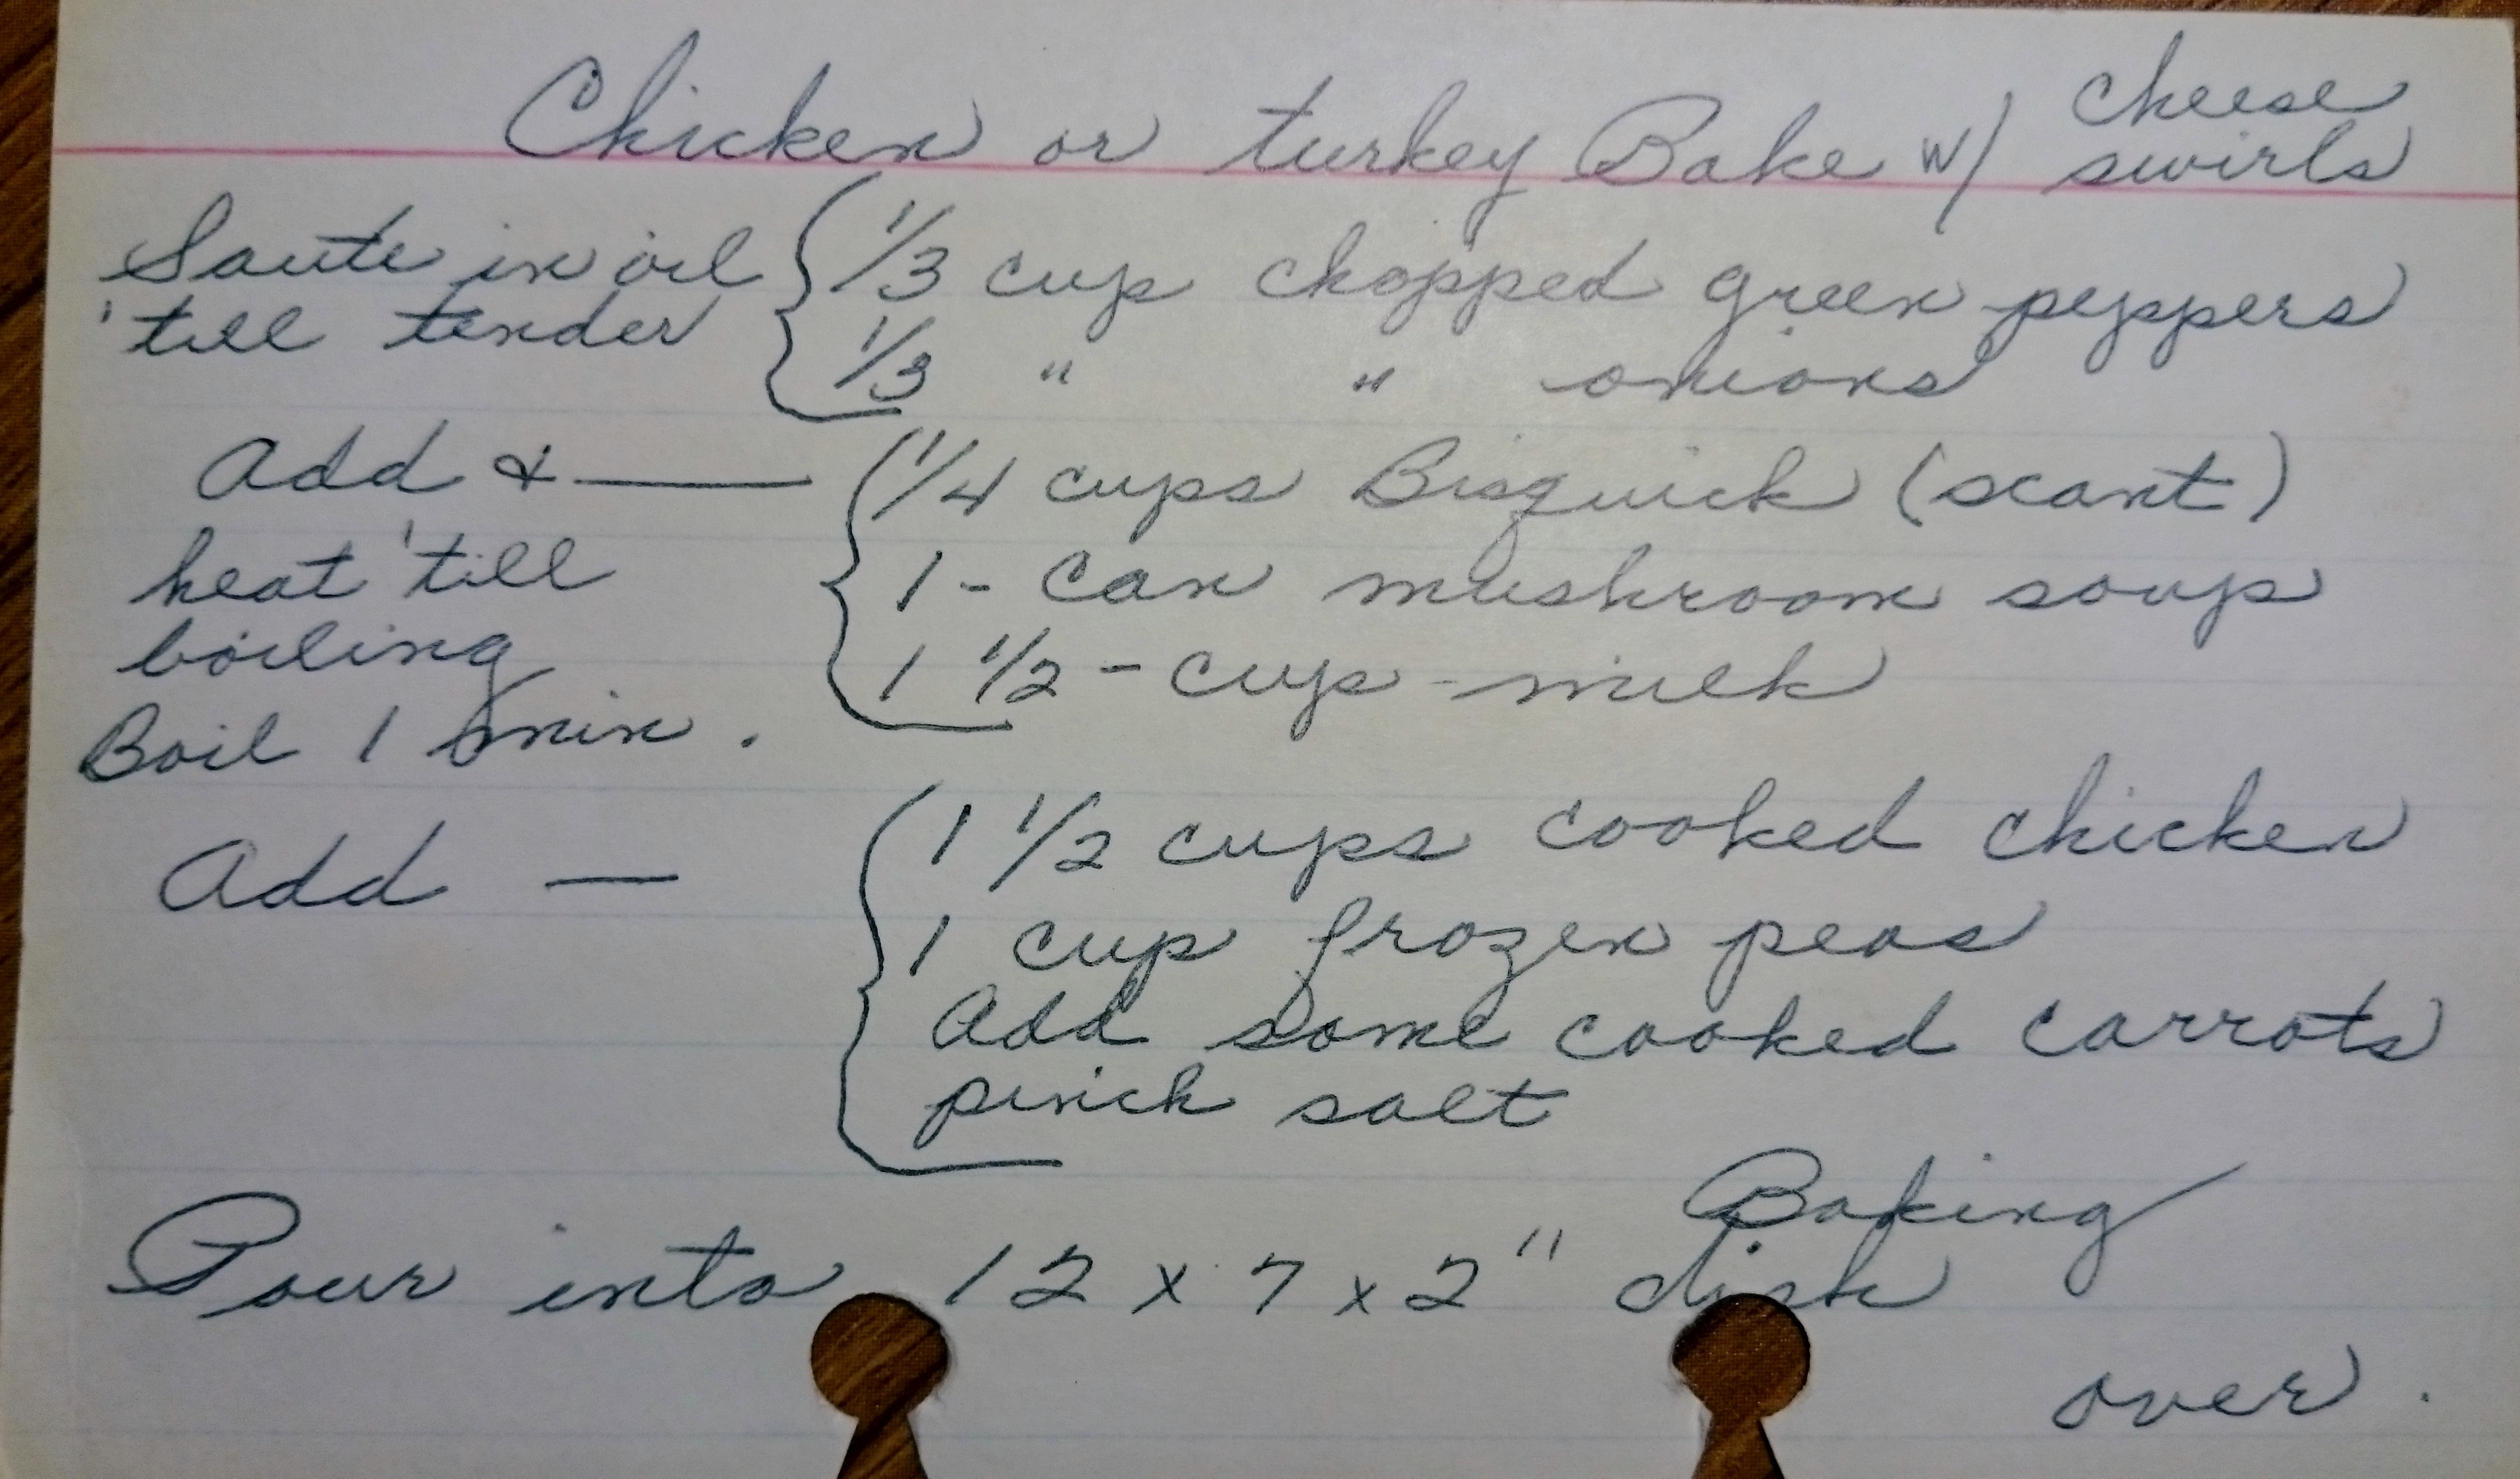 Chicken or turkey Bake w/ cheese swirls
Saute in oil 'till tender
1/3 cup chopped green peppers
1/3 " " onions
Add & —
heat 'till
boiling
Boil 1 min.
1/4 cups Bisquick (scant)
1 - Can mushroom soup
1 1/2 - cup - milk
Add —
1 1/2 cups cooked chicken
1 cup frozen peas
Add some cooked carrots
pinch salt
Pour into 12 x 7 x 2" Baking dish
over.